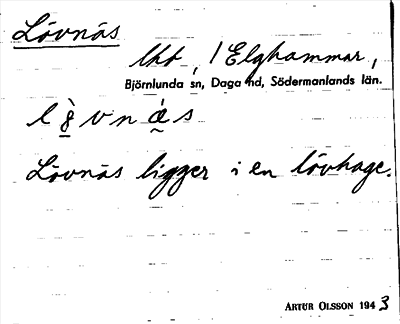 Lövnäs
lht, / Elghammar,
Björnlunda sn, Daga hd, Södermanlands län.
Lövnäs ligger i en lövhage.
ARTUR OLSSON 1943